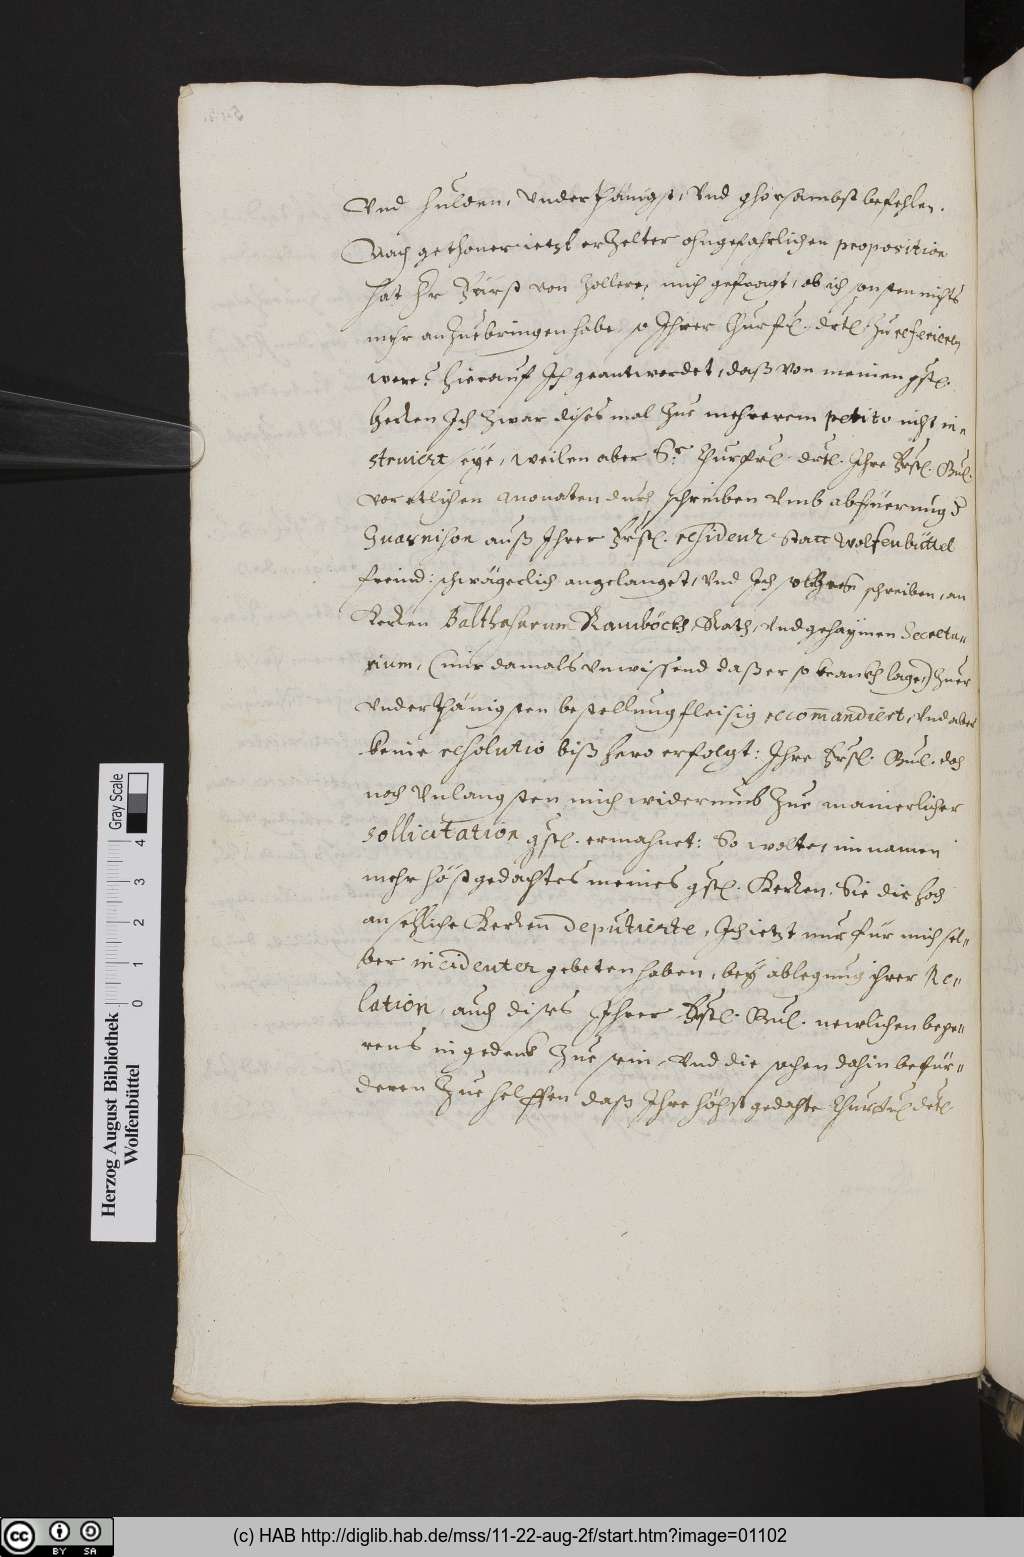 Vnd hulden, vnderthänigst, vnd ghorsambst befehlen.
Nach gethoner ietzt erzelter ohngefahrlichen proposition
hat Hr Fürst von Zollern, mich gefragt, ob ich sonsten nichts
mehr anzuebringen habe, so Ihrer Churfrl. drtl. zu referieren
were? hierauf Ich geantwordet, daß von meinen gstl.
herren Ich zwar dises mal zue mehrerem petito nicht in-
struiert seye, weilen aber Sr. Churfrl. drtl. Ihre Frstl. Gnl.
vor etlichen monaten durch schreiben vmb abfüerung d
Guarnison auß Ihrer Frstl. residenz Statt Wolfenbüttel
freind: schwägerlich angelanget, vnd Ich schreiben, an
Herren Balthasarum Ramböckh, Rath, vnd gehaymen Secreta-
rium, (mir damals vnwissend daß er so kranckh lage) zuer
vnderthänigsten bestellung fleisig recommandiert, vnd aber
keine resolutio biß hero erfolgt: Ihre Frstl. Gnl. doch
noch vnlangsten mich widerumb zue manierlicher
sollicitation gstl. ermahnet: So wolte, im namen
mehr höstgedachtes meines gstl. Herren, Sie die hoch
ansehliche Herren Deputierte, Ich ietzt nur für mich sel-
ber incidenter gebeten haben, bey ablegung ihrer Re-
lation, auch dises Ihrer Frstl. Gnl. newlichen bege-
rens ingedenk zue sein, vnd die sachen dahin befür-
deren zue helffen daß Ihre höchstgedachte Churfrl drtl.
Herzog August Bibliothek
Wolfenbüttel
0 1 2 3 4 Gray Scale
(c) HAB http://diglib.hab.de/mss/11-22-aug-2f/start.htm?image=01102
cc BY SA